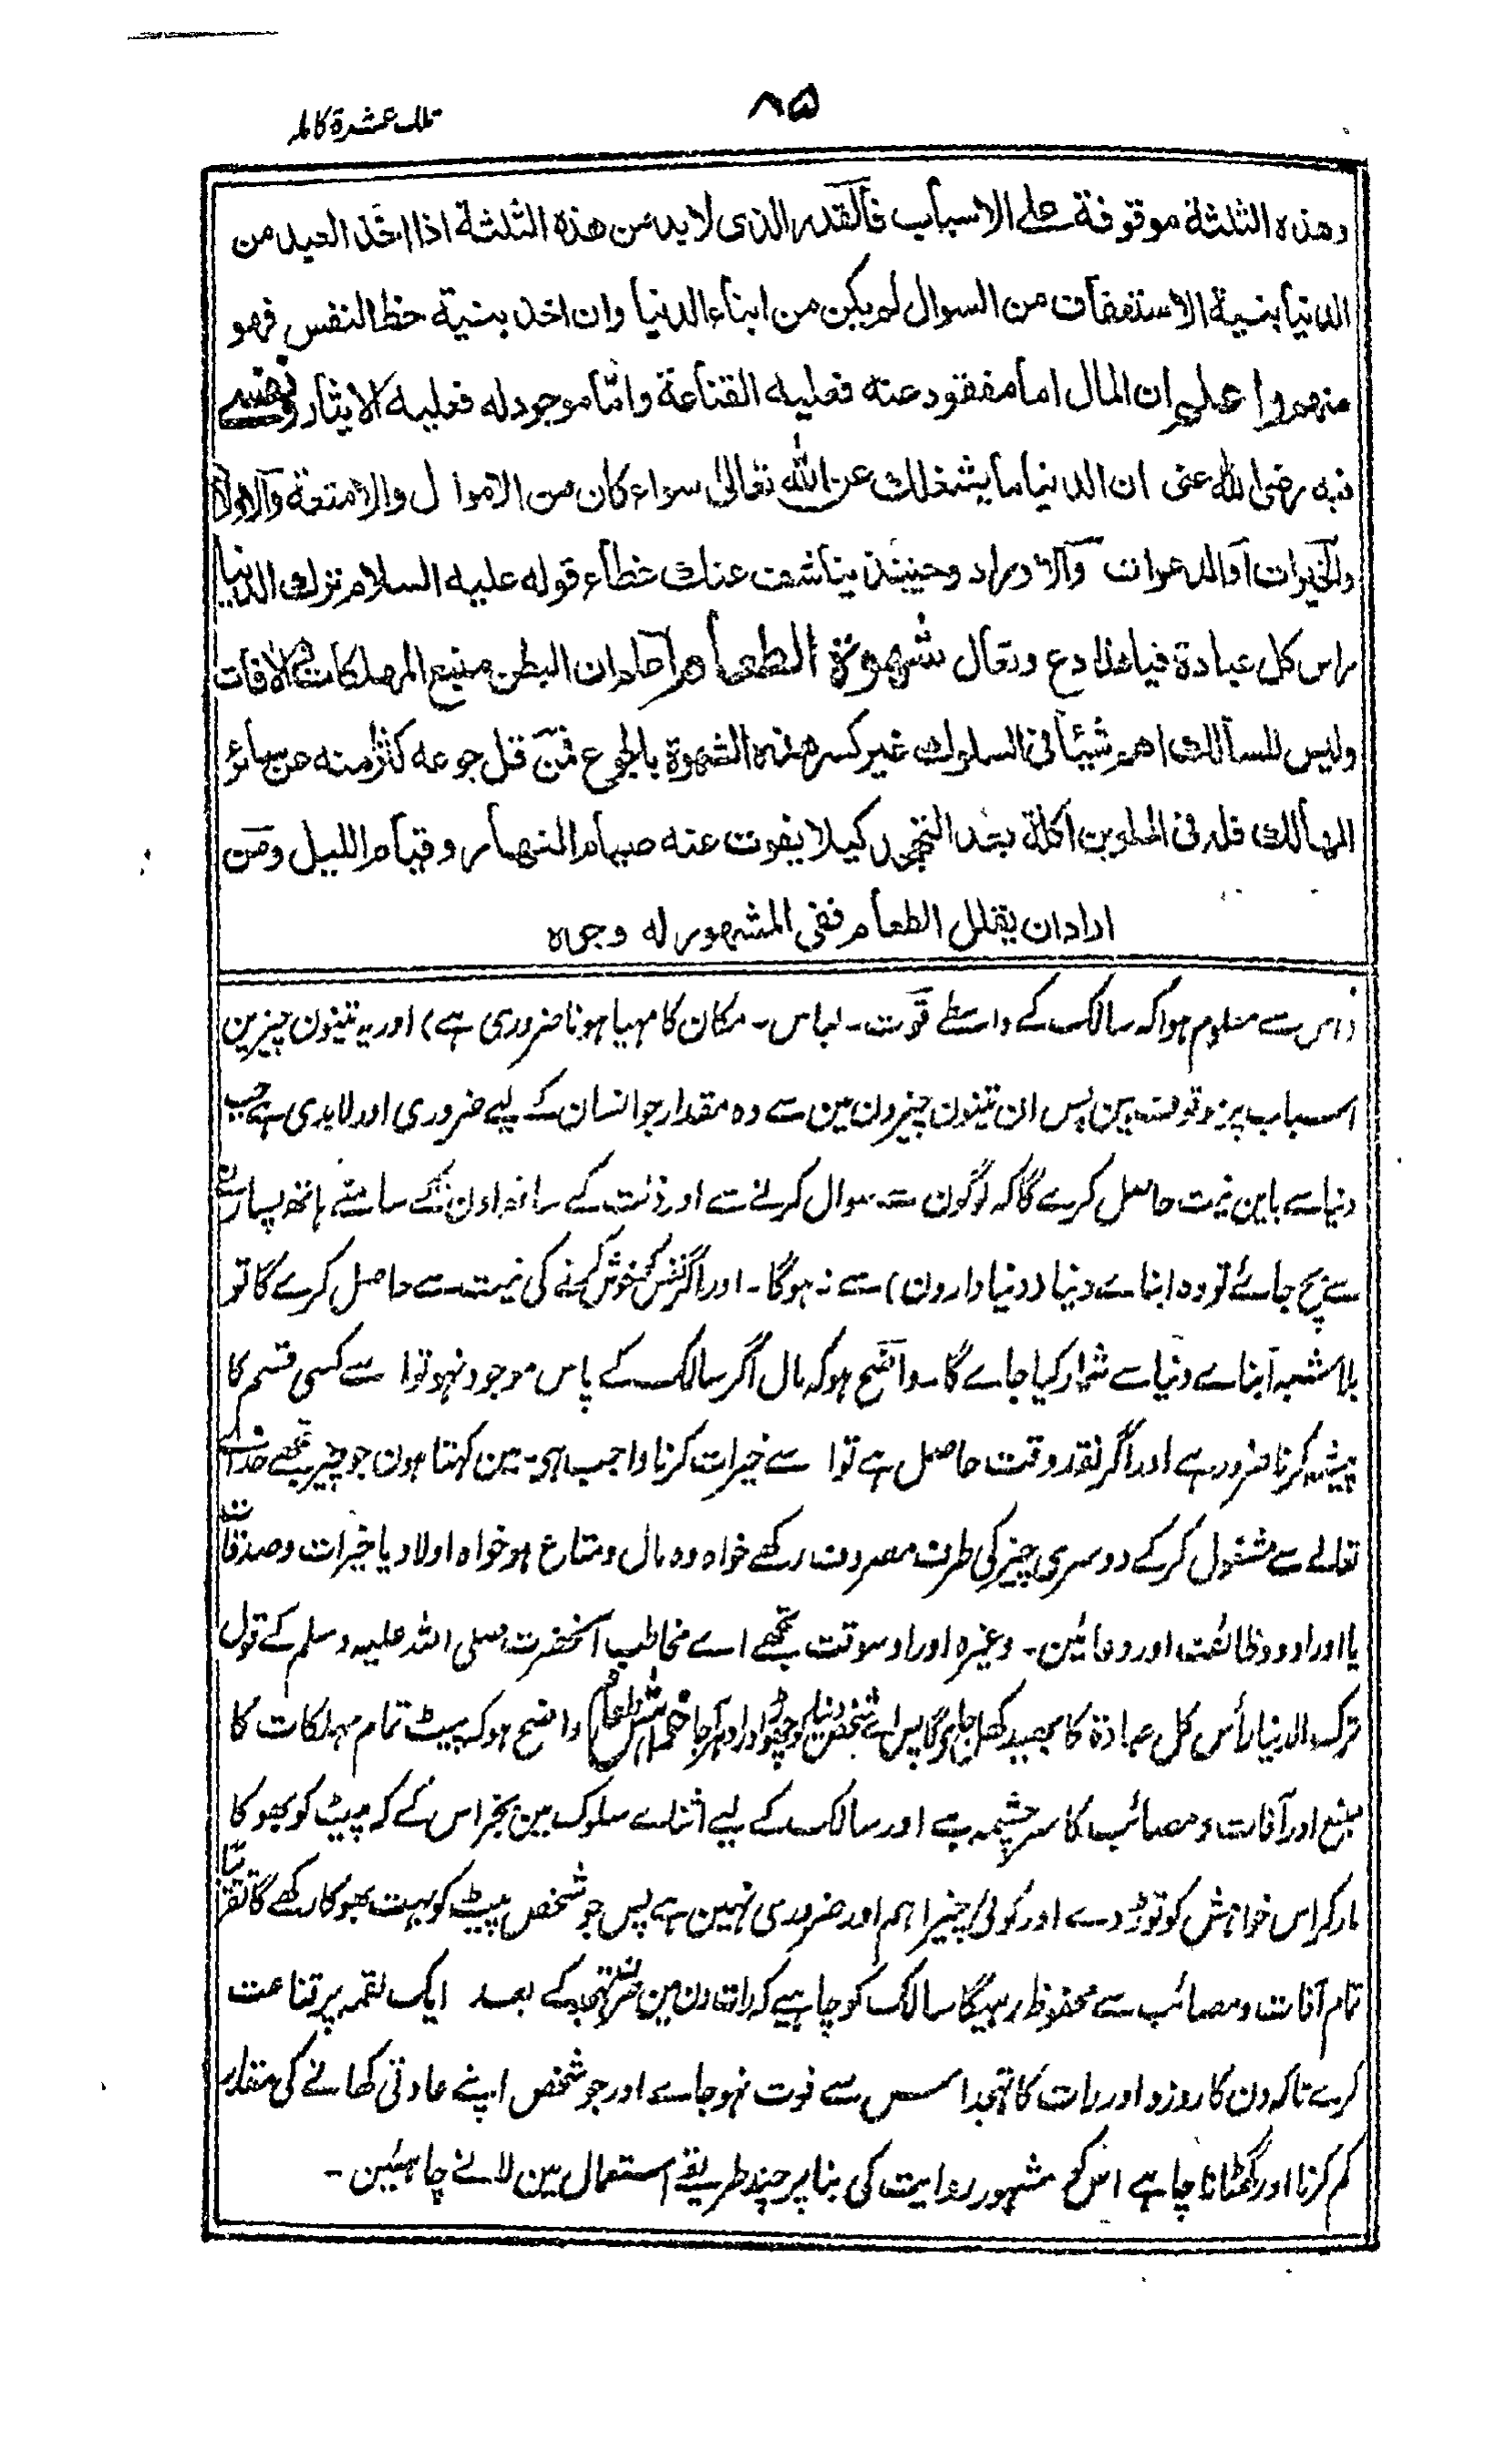 ۸۵
تلك عشرة كامله
وهذه الثلثة موقوفة على الاسباب فالقدر الذى لابد من هذه الثلثة اذا اخذ العبد من
الدنيا بنية الاستعفاف من السوال لم يكن من ابناء الدنيا وان اخذ بنية حظ النفس فهو
منهم واعلم ان المال اما مفقود عنه فعليه القناعة واما موجود له فعليه الايثار
فيه رضى الله عنى ان الدنيا ما يشغلك عن الله تعالى سواء كان من الاموال والامتعة والاولاد
والخيرات او الدعوات والاوراد وحينئذ ينكشف عنك غطاء قوله عليه السلام ترك الدنيا
راس كل عبادة فيا هذا دع وتعال شهوة الطعام اعلم ان البطن منبع المهلكات والافات
وليس للسالك اهم شيئا فى السلوك غير كسر هذه الشهوة بالجوع فمن قل جوعه كثر امنه من سائر
المهالك فله فى الملوين اكلة بعد التهجد كيلا يفوت عنه صيام النهار وقيام الليل ومن
اراد ان يقلل الطعام ففى المشهور له وجوه
(اس سے معلوم ہوا کہ سالک کے واسطے قوت۔ لباس۔ مکان کا مہیا ہونا ضروری ہے) اور یہ تینون چیزین
اسباب پر موقوف ہین پس ان تینون چیزون مین سے وہ مقدار جو انسان کے لیے ضروری اور لابدی ہے جب
دنیا سے باین نیت حاصل کرے گا کہ لوگون سے سوال کرنے سے اور ذلت کے ساتھ اون کے سامنے ہاتھ پسارنے
سے بچ جائے تو وہ ابناے دنیا (دنیا دارون) سے نہ ہوگا۔ اور اگر نفس کے خوش کرنے کی نیت سے حاصل کرے گا تو
بلا شبہ ابناے دنیا سے شمار کیا جاے گا۔ واضح ہو کہ مال اگر سالک کے پاس موجود نہو تو اسے کسی قسم کا
پیشہ کرنا ضرور ہے اور اگر نقد وقت حاصل ہے تو اسے خیرات کرنا واجب ہی۔ مین کہتا ہون جو چیز تجھے خداے
تعالے سے مشغول کر کے دوسری چیز کی طرف مصروف رکھے خواہ وہ مال و متاع ہو خواہ اولاد یا خیرات و صدقات
یا اوراد و وظائف اور دعائین۔ وغیرہ اور اوسوقت تجھے اے مخاطب آنحضرت صلی اللہ علیہ وسلم کے قول
ترک الدنیا رأس کل عبادۃ کا بھید کھل جاویگا پس اے شخص دنیا کو چھوڑ اور ادہر آجا خواہش طعام) واضح ہو کہ پیٹ تمام مہلکات کا
منبع اور آفات و مصائب کا سر چشمہ ہے اور سالک کے لیے اثناے سلوک مین بجز اس کے کہ پیٹ کو بھوکا
مار کر اس خواہش کو توڑ دے اور کوئی چیز اہم اور ضروری نہین ہے پس جو شخص پیٹ کو بہت بھوکا رکھے گا تقریبًا
تمام آفات و مصائب سے محفوظ رہیگا سالک کو چاہیے کہ رات دن مین صرف تہجد کے بعد ایک لقمہ پر قناعت
کرے تاکہ دن کا روزہ اور رات کا تہجد اس سے فوت نہو جاے اور جو شخص اپنے عادتی کھانے کی مقدار
کم کرنا اور گھٹانا چاہے اس کو مشہور روایت کی بنا پر چند طریقے استعمال مین لانے چاہئین۔